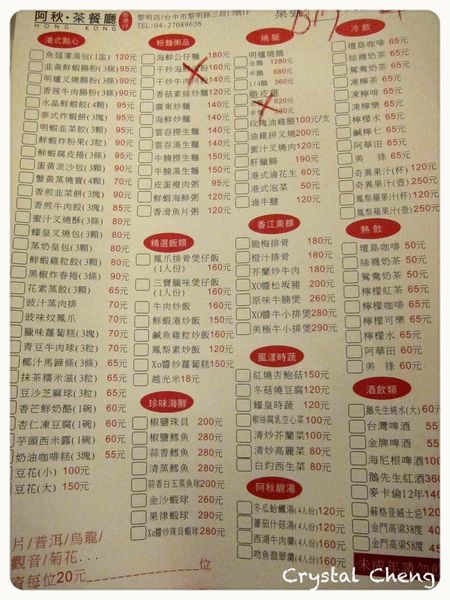 阿秋·茶餐廳
HONG KONG
黎明店/台中市黎明路三段13號1F
TEL: 04-27089636
港式點心
魚翅灌湯包(1盅) 120元
韮黃鮮蝦腸粉(3條) 95元
明爐叉燒腸粉(3條) 80元
香茜牛肉腸粉(3條) 80元
水晶鮮蝦餃(4顆) 95元
泰式炸蝦餅(3塊) 95元
明蝦韭菜餃(3顆) 90元
鮮蝦炸粉果(3粒) 90元
鮮蝦腐皮捲(3條) 90元
蛋黃流沙包(3顆) 90元
蟹黃蒸燒賣(4顆) 70元
香煎韭菜餅(3塊) 90元
香煎牛肉餃(3塊) 85元
蜜汁叉燒酥(3條) 80元
蠔皇叉燒包(3顆) 80元
蒸奶皇包(3顆) 80元
鮮蝦豬腸粉(3粒)
黑椒炸春捲(3條) 60元
花素蒸餃(3顆) 65元
豉汁蒸肉排 70元
豉味炆鳳爪 70元
臘味蘿蔔糕(3塊) 70元
青豆牛肉球(3顆) 70元
椰汁馬蹄條(3條) 65元
抹茶糯米滋(3粒) 65元
豆沙芝麻球(3粒) 65元
香芒鮮奶酪(1碗) 60元
杏仁凍豆腐(1碗) 60元
芋頭西米露(1碗) 60元
奶油咖啡糕(3塊) 60元
豆花(小) 100元
豆花(大) 150元
粉麵粥品
海鮮公仔麵 180元
干炒海鮮
香菇素絲炒麵 120元
廣東炒麵 140元
海鮮炒麵 140元
雲吞撈生麵 120元
雲吞湯生麵 120元
牛腩撈生麵 150元
牛腩湯生麵 150元
皮蛋瘦肉粥 90元
鮮蝦海鮮粥 90元
香滑魚片粥 90元
精選飯類
鳳爪排骨煲仔飯 (1人份) 160元
三寶臘味煲仔飯 (1人份) 160元
牛肉炒飯 160元
鮮蝦港炒飯 150元
鹹魚雞粒炒飯 160元
鳳梨素炒飯 120元
Xo醬炒蘿蔔糕 150元
越光米 18元
珍味海鮮
椒鹽珠貝 200元
椒鹽鱈魚 280元
豉汁鱈魚 280元
清蒸鱈魚 280元
蒜香白玉蒸魚球 200元
金沙蝦球 280元
果律蝦球 290元
XO醬炒珠貝蝦球 280元
燒臘
明爐燒鵝
全鵝 1280元
半鵝 660元
1/4鵝 360元
脆皮雞
620元
玫瑰油雞腿 100元/支
油雞拼叉燒 200元
蜜汁叉燒肉 120元
肝臘腸 190元
港式滷花生 60元
港式泡菜 50元
滷牛腱 120元
香江美饌
脆梅排骨 180元
橙汁排骨 180元
芥蘭炒牛肉 180元
XO醬松坂豬 200元
原味牛腩煲 260元
XO醬牛小排煲 280元
美極牛小排煲 290元
風漾時蔬
紅燒杏鮑菇 150元
冬菇燒豆腐 120元
蠔皇時蔬 120元
椒絲腐乳空心菜 100元
清炒芥蘭菜 100元
清炒高麗菜 80元
白灼西生菜 80元
阿秋靚湯
冬瓜蛤蠣湯(4人份) 120元
蕃茄什菇湯(4人份) 120元
西湖牛肉羹(4人份) 160元
吻魚翡翠羹(4人份) 160元
冷飲
壇島咖啡
絲襪奶茶 65元
鴛鴦奶茶 65元
凍檸茶 65元
凍檸啡 65元
凍檸樂 65元
檸檬水 65元
鹹檸七 65元
阿華田 65元
美祿 65元
奇異果汁(杯) 120元
奇異果汁(壺) 250元
鳳梨蘋果汁(杯) 120元
鳳梨蘋果汁(壺) 250元
熱飲
壇島咖啡 50元
絲襪奶茶 50元
鴛鴦奶茶 50元
檸檬紅茶 60元
檸檬咖啡 60元
檸檬可樂 65元
檸檬水 60元
阿華田 60元
美祿 60元
酒飲類
鵝先生純水(大) 60元
台灣啤酒 55元
金牌啤酒 55元
海尼根啤酒
鵝先生紅酒
麥卡倫12年
蘇格登威士忌
金門高粱38度 40
金門高粱58度 45
未成年請勿飲
片/普洱/烏龍/
觀音/菊花...
資每位20元 位
Crystal Cheng